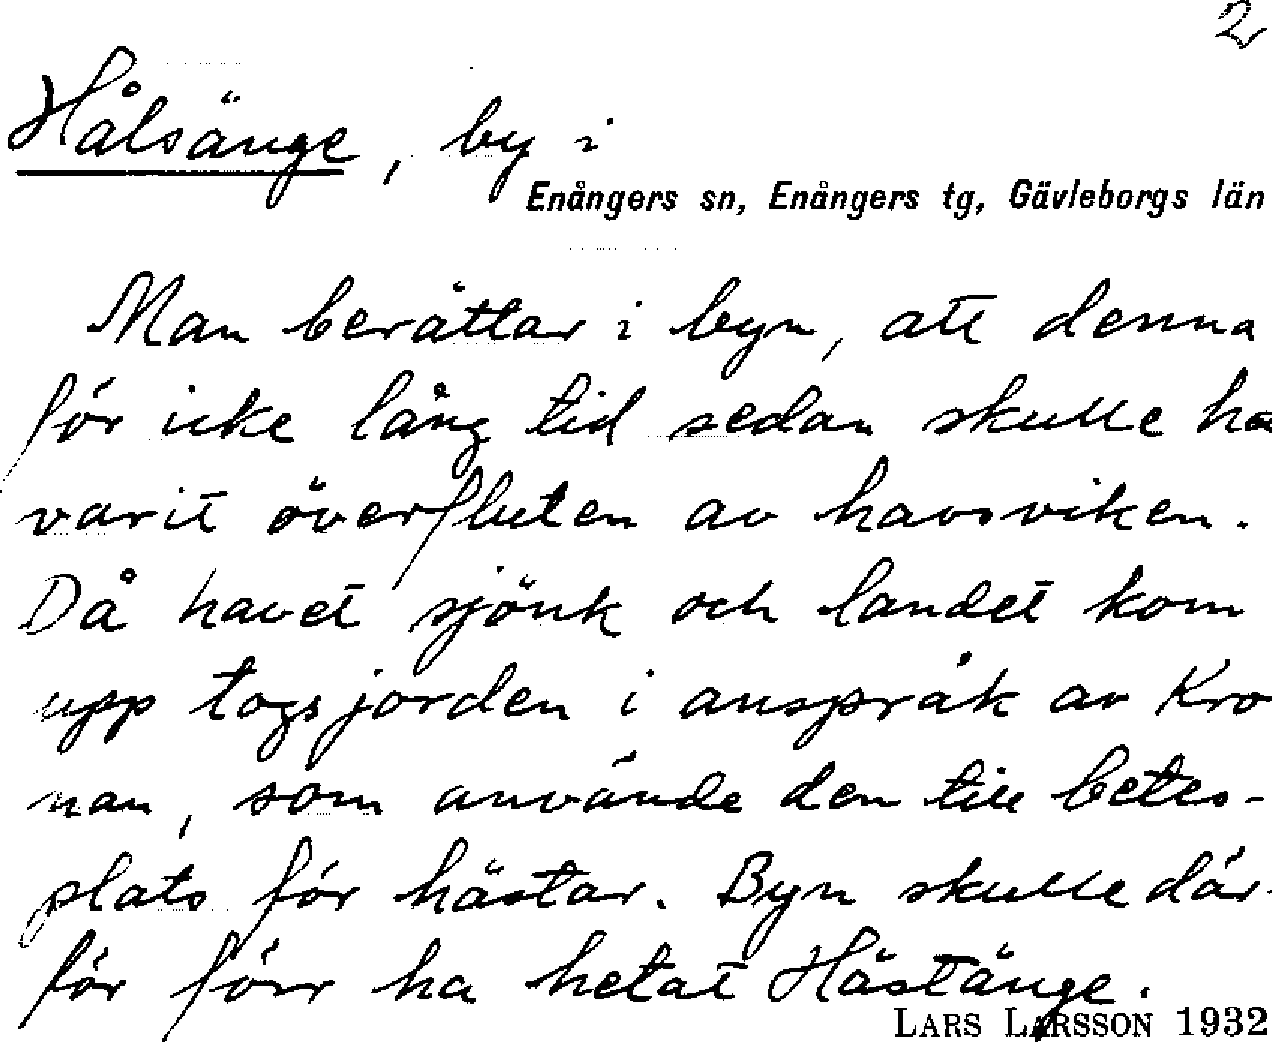 2
Hålsänge, by i
Enångers sn, Enångers tg, Gävleborgs län
Man berättar i byn, att denna
för icke lång tid sedan skulle ha
varit överfluten av havsviken.
Då havet sjönk och landet kom
upp togs jorden i anspråk av Kro
nan, som använde den till betes-
plats för hästar. Byn skulle där-
för förr ha hetat Hästänge.
LARS LARSSON 1932